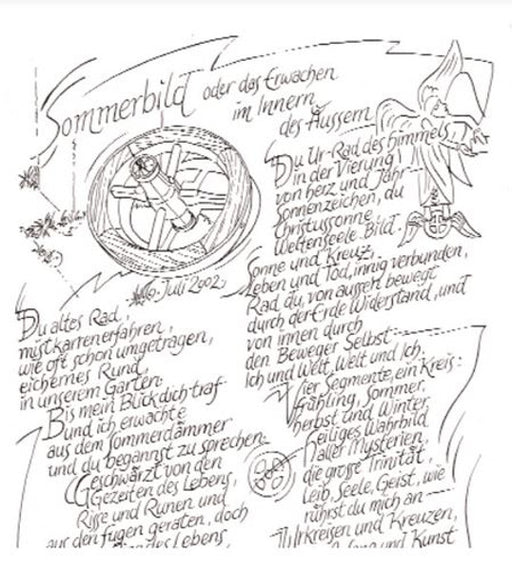 Sommerbild oder das Erwachen
im Innern
des Äussern
16. Juli 2002
Du altes Rad,
mistkarrenerfahren,
wie oft schon umgetragen,
eichernes Rund,
in unserem Garten.
Bis mein Blick dich traf
und ich erwachte
aus dem Sommerdämmer
und du begannst zu sprechen:
Geschwärzt von den
Gezeiten des Lebens,
Risse und Runen und
aus den Fugen geraten, doch
des Lebens
Du Ur-Rad des Himmels
in der Vierung
von Herz und Jahr
Sonnenzeichen, du
Christussonne
Weltenseele-Bild.
Sonne und Kreuz,
Leben und Tod, innig verbunden,
Rad du, von aussen bewegt
durch der Erde Widerstand, und
von innen durch
den Beweger Selbst
Ich und Welt, Welt und Ich.
Vier Segmente, ein Kreis:
Frühling, Sommer,
Herbst und Winter
heiliges Wahrbild
aller Mysterien,
die grosse Trinität,
Leib, Seele, Geist, wie
rührst du mich an
Urkreisen und Kreuzen,
und Kunst